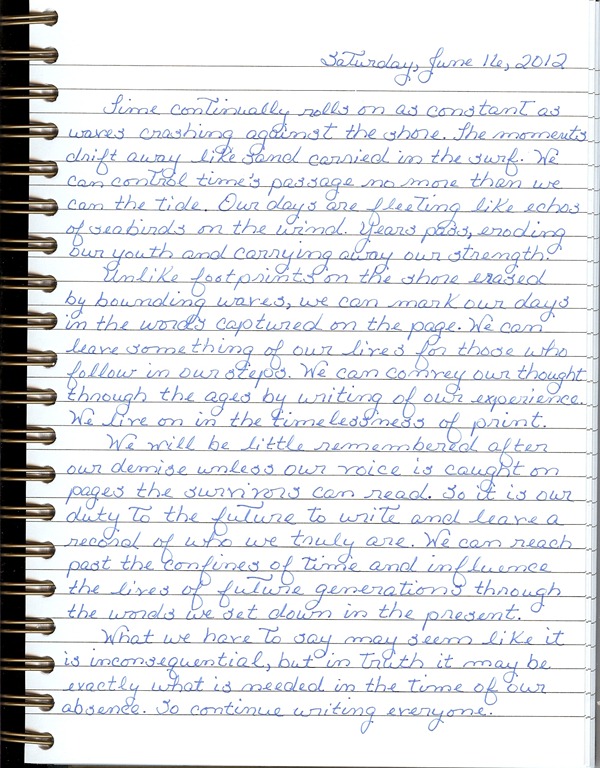 Saturday, June 16, 2012
Time continually rolls on as constant as
waves crashing against the shore. The moments
drift away like sand carried in the surf. We
can control time's passage no more than we
can the tide. Our days are fleeting like echos
of seabirds on the wind. Years pass, eroding
our youth and carrying away our strength.
Unlike footprints on the shore erased
by bounding waves, we can mark our days
in the words captured on the page. We can
leave something of our lives for those who
follow in our steps. We can convey our thought
through the ages by writing of our experience.
We live on in the timelessness of print.
We will be little remembered after
our demise unless our voice is caught on
pages the survivors can read. So it is our
duty to the future to write and leave a
record of who we truly are. We can reach
past the confines of time and influence
the lives of future generations through
the words we set down in the present.
What we have to say may seem like it
is inconsequential, but in truth it may be
exactly what is needed in the time of our
absence. So continue writing everyone.